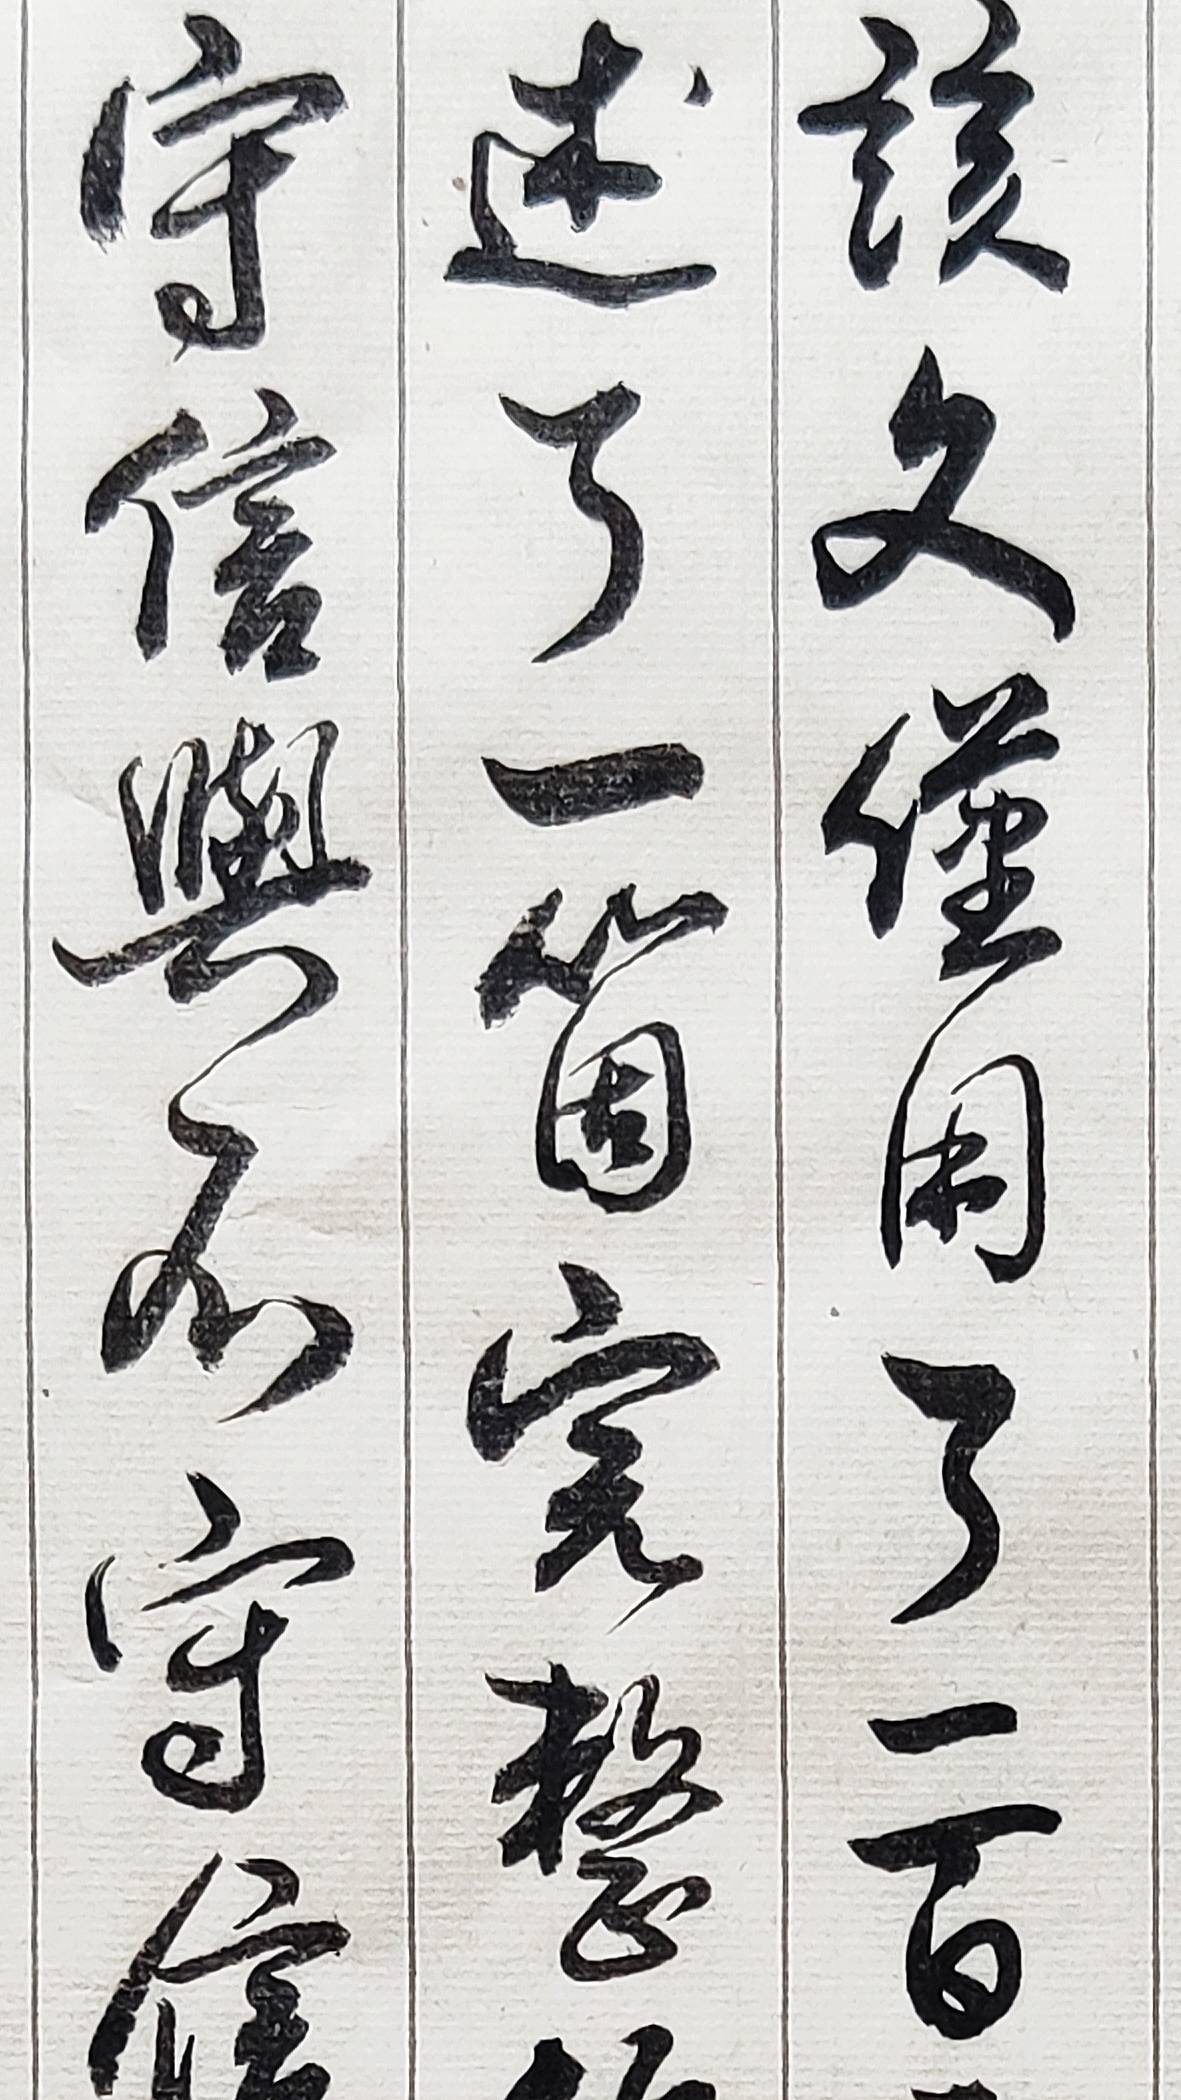 該文僅用了一百
述了一箇完整
守信與不守信